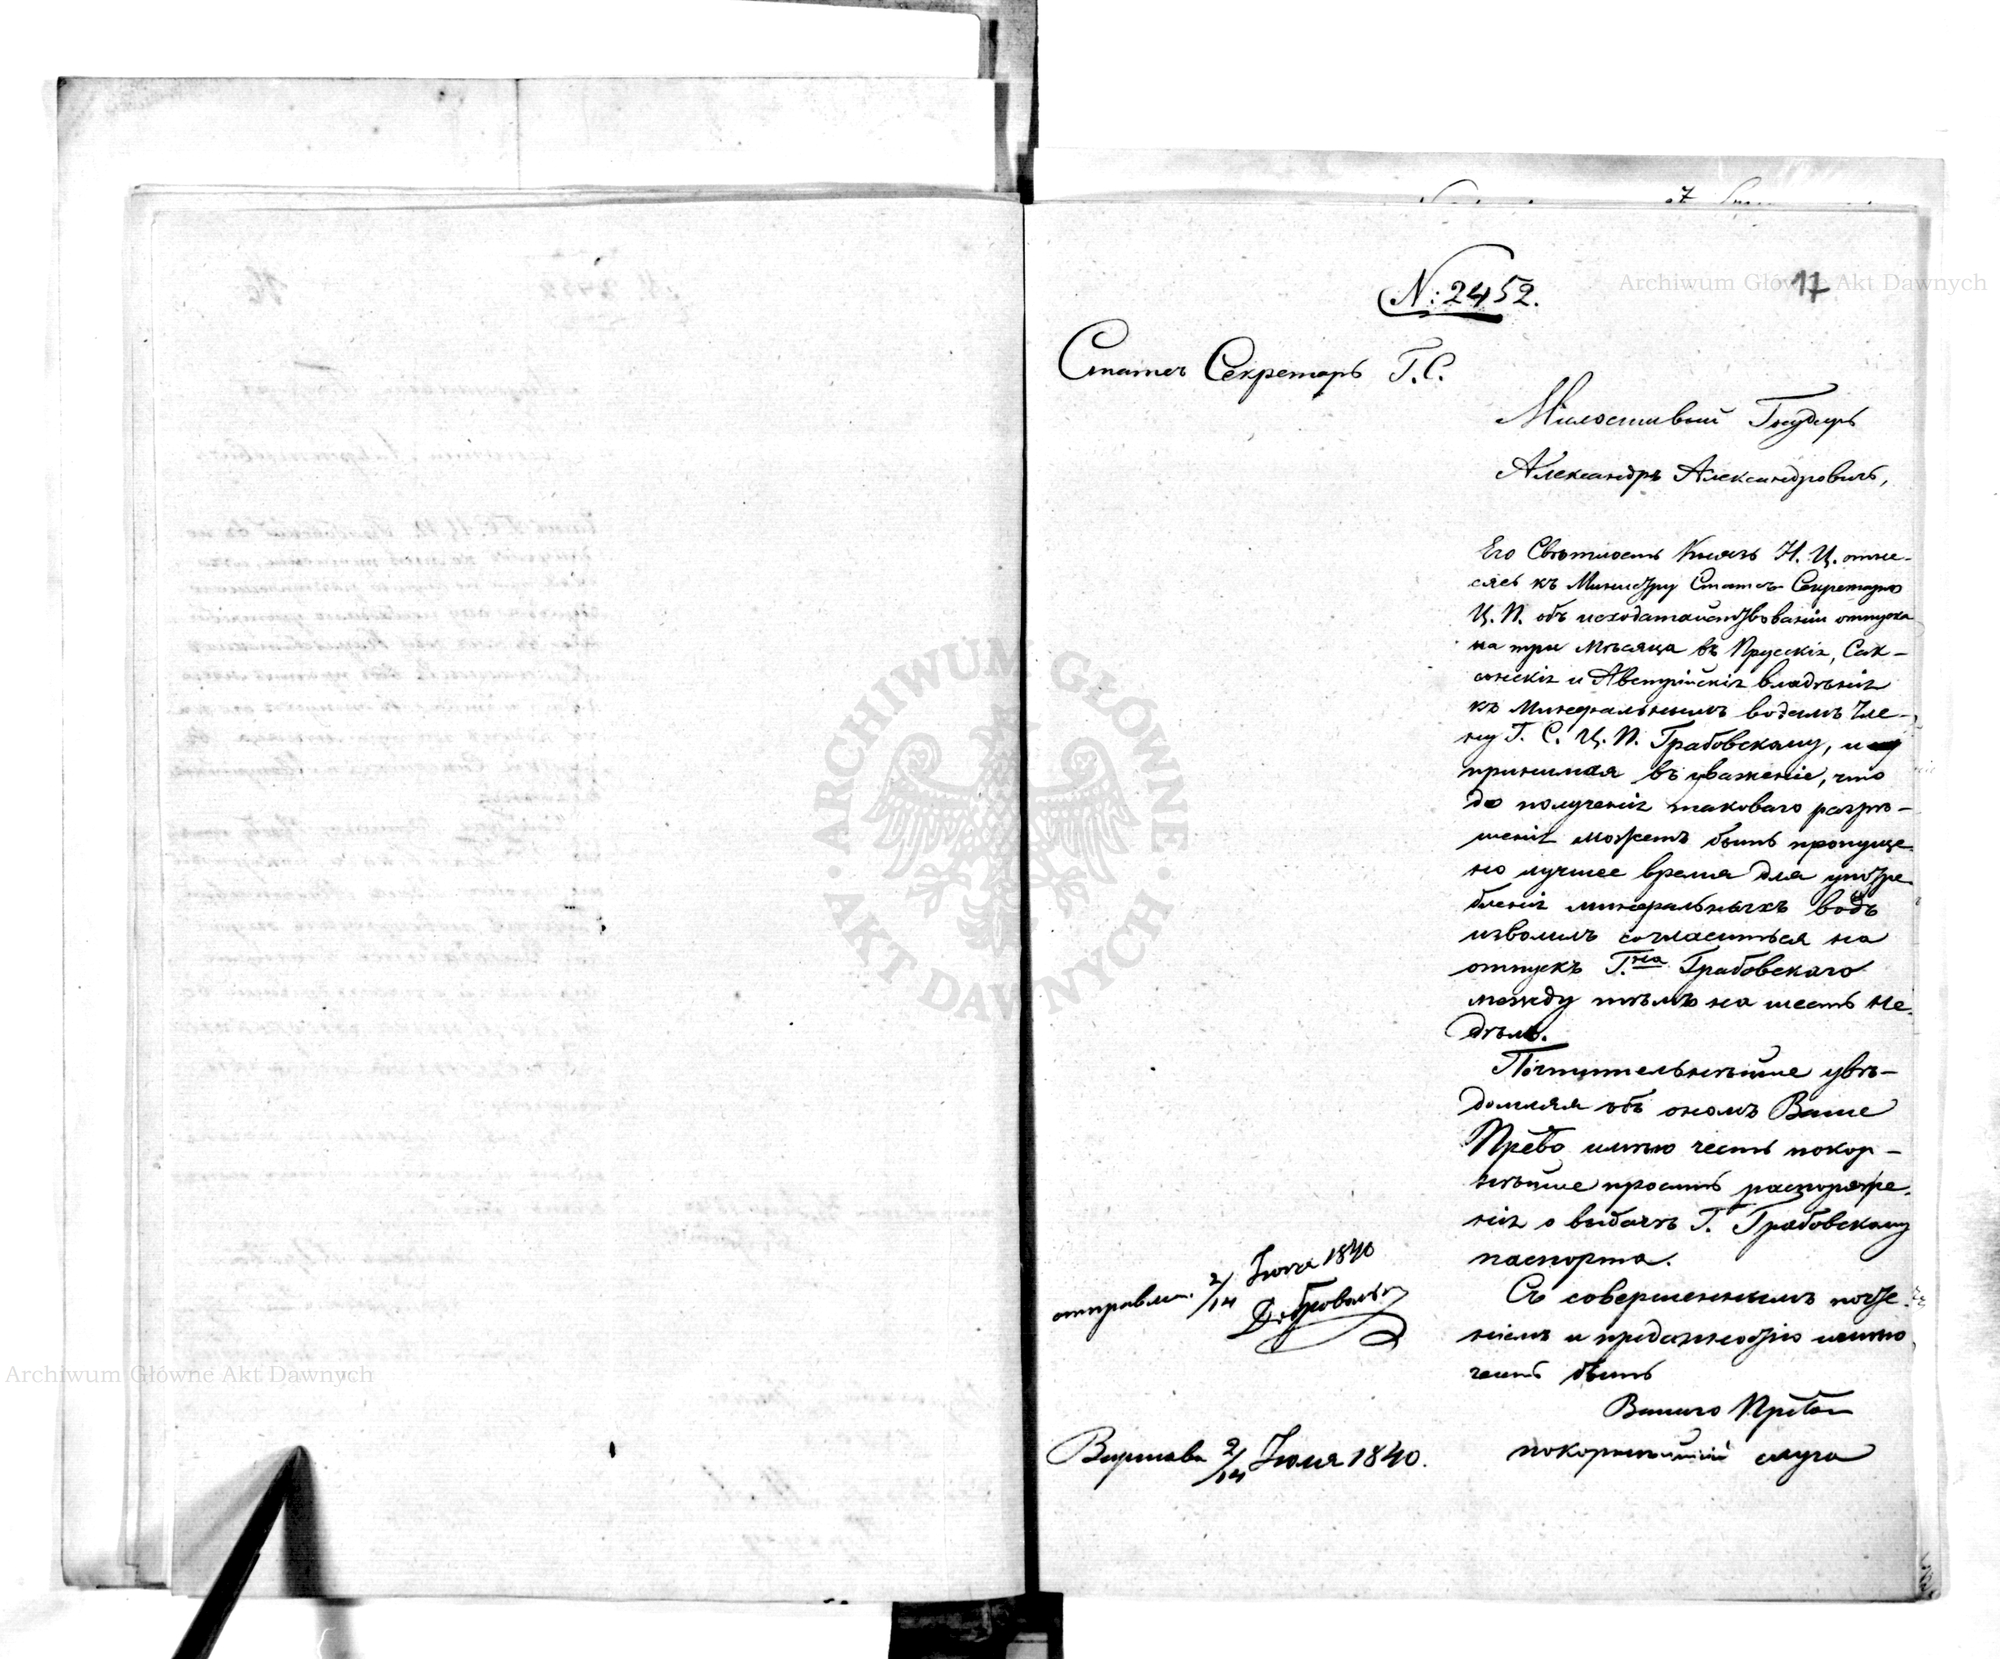 N: 2452.
17
Статсъ Секретарь Г. С.
Милостивый Государь
Александръ Александровичь,
Его Свѣтлость Князь Н. Ц. отне-
сясь къ Министру Статсъ Секретарю
Ц. П. объ исходатайствованіи отпуска
на три мѣсяца въ Прусскія, Сак-
сонскія и Австрійскія владѣнія
къ минеральнымъ водамъ Чле-
ну Г. С. Ц. П. Грабовскому, и
принимая въ уваженіе, что
до полученія таковаго разрѣ-
шенія можетъ быть пропуще-
но лучшее время для употре-
бленія минеральныхъ водъ
изволилъ согласиться на
отпускъ Г.на Грабовскаго
между тѣмъ на шесть не-
дѣль.
Почтительнѣйше увѣ-
домляя объ ономъ Ваше
Прево имѣю честь покор-
нѣйше просить распоряже-
нія о выдачѣ Г. Грабовскому
паспорта.
Съ совершеннымъ почте-
ніемъ и преданностію имѣю
честь быть
Вашего Прева
покорнѣйшій слуга
отправлен. 2/14 Іюля 1840
Варшава 2/14 Іюля 1840.
Archiwum Główne Akt Dawnych
Archiwum Główne Akt Dawnych
ARCHIWUM GŁÓWNE
AKT DAWNYCH